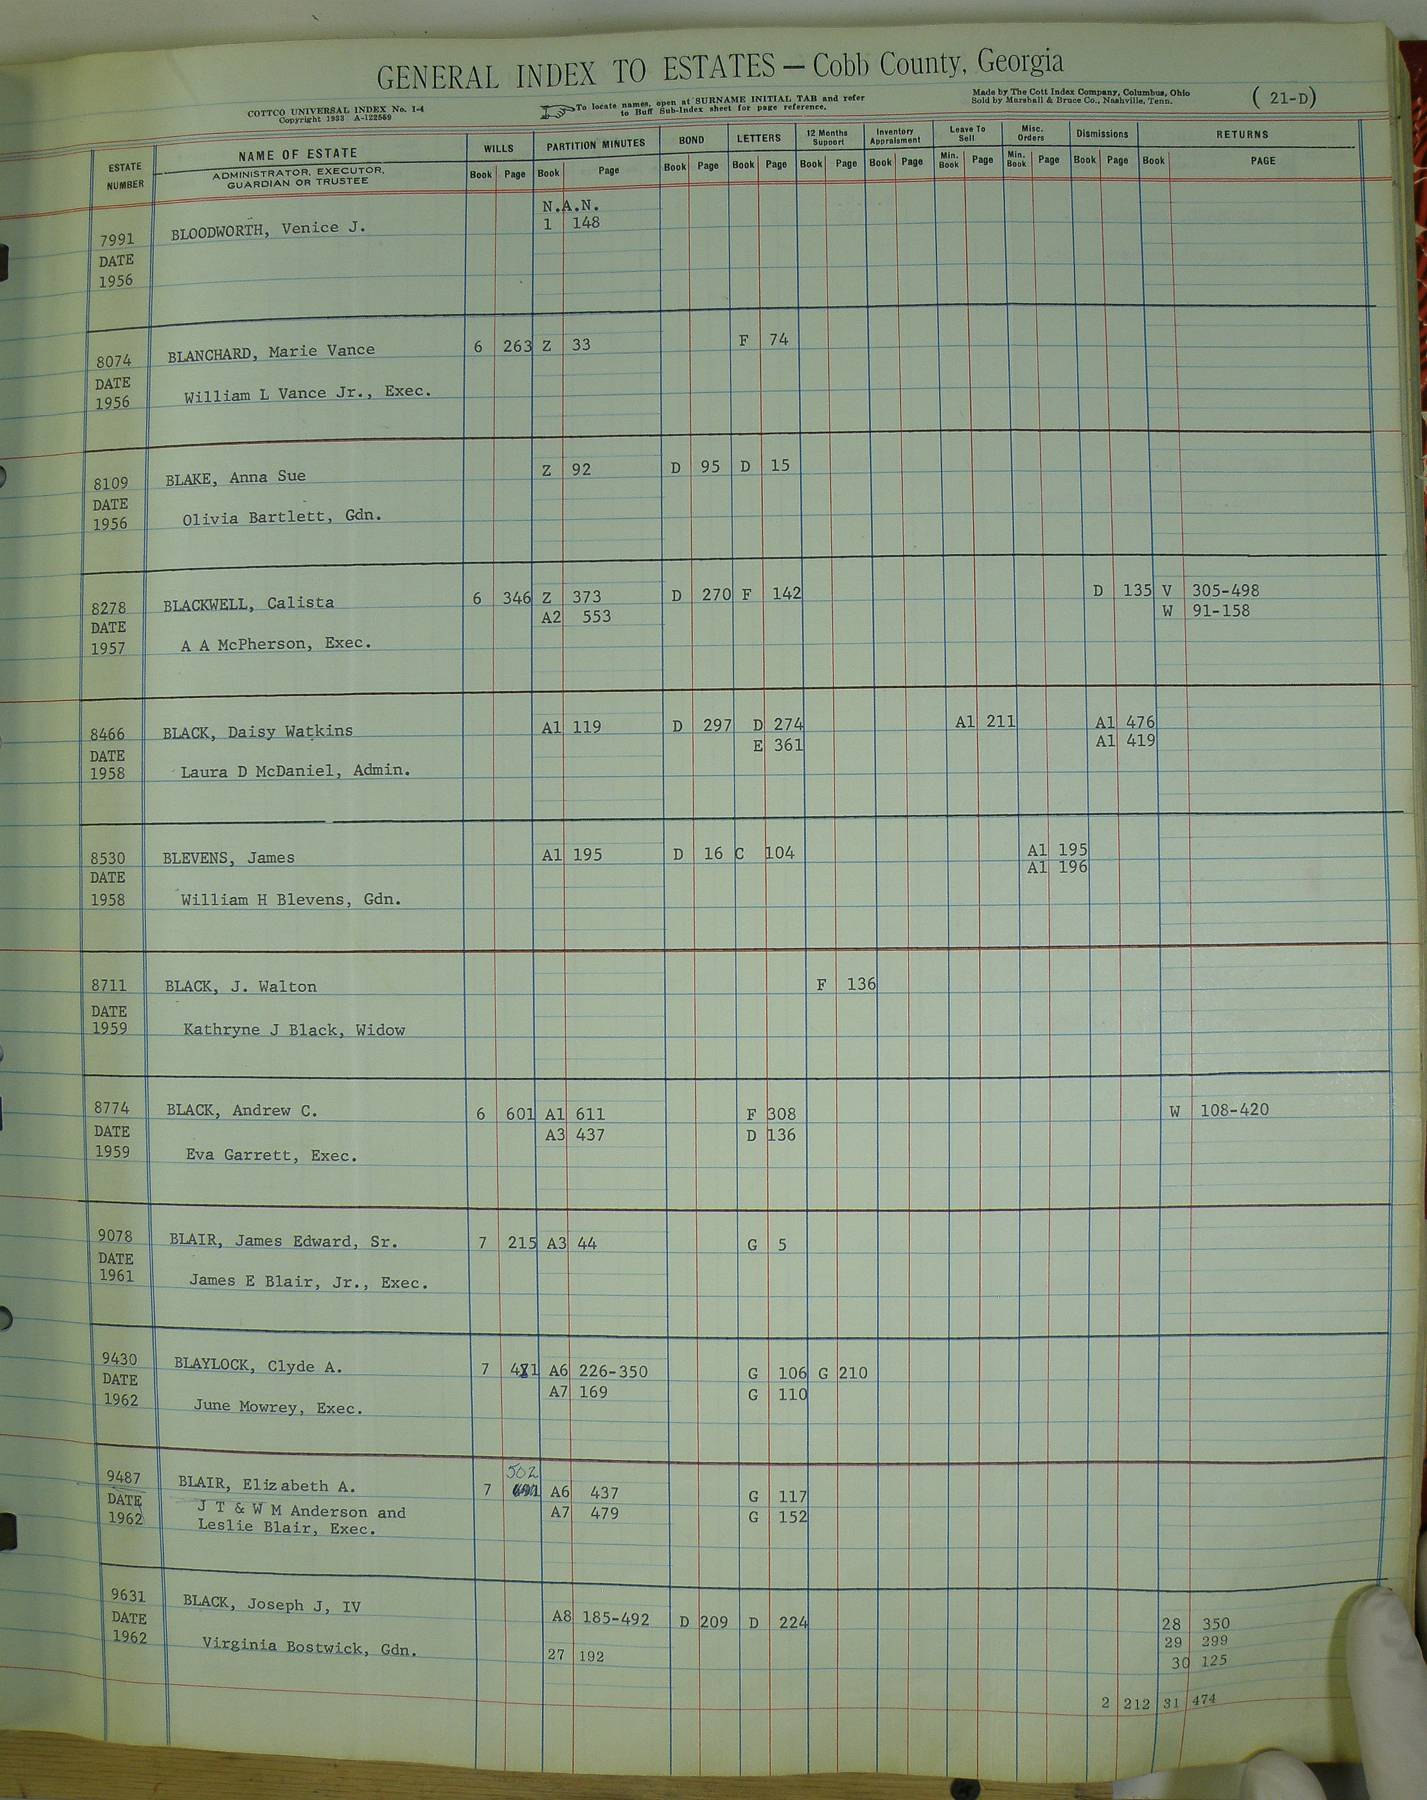 GENERAL INDEX TO ESTATES — Cobb County, Georgia
COTTCO UNIVERSAL INDEX No. 1-4
Copyright 1933 A-122569
To locate names, open at SURNAME INITIAL TAB and refer
to Buff Sub-Index sheet for page reference.
Made by The Cott Index Company, Columbus, Ohio
Sold by Marshall & Bruce Co., Nashville, Tenn.
( 21-D)
ESTATE NUMBER NAME OF ESTATE WILLS PARTITION MINUTES BOND LETTERS 12 Months Support Inventory Appraisment Leave To Sell Misc. Orders Dismissions RETURNS
ADMINISTRATOR, EXECUTOR, GUARDIAN OR TRUSTEE Book Page Book Page Book Page Book Page Book Page Book Page Min. Book Page Min. Book Page Book Page Book PAGE
N.A.N.
7991 BLOODWORTH, Venice J. 1 148
DATE
1956
8074 BLANCHARD, Marie Vance 6 263 Z 33 F 74
DATE
1956 William L Vance Jr., Exec.
8109 BLAKE, Anna Sue Z 92 D 95 D 15
DATE
1956 Olivia Bartlett, Gdn.
8278 BLACKWELL, Calista 6 346 Z 373 D 270 F 142 D 135 V 305-498
DATE A2 553 W 91-158
1957 A A McPherson, Exec.
8466 BLACK, Daisy Watkins A1 119 D 297 D 274 A1 211 A1 476
DATE E 361 A1 419
1958 Laura D McDaniel, Admin.
8530 BLEVENS, James A1 195 D 16 C 104 A1 195
DATE A1 196
1958 William H Blevens, Gdn.
8711 BLACK, J. Walton F 136
DATE
1959 Kathryne J Black, Widow
8774 BLACK, Andrew C. 6 601 A1 611 F 308 W 108-420
DATE A3 437 D 136
1959 Eva Garrett, Exec.
9078 BLAIR, James Edward, Sr. 7 215 A3 44 G 5
DATE
1961 James E Blair, Jr., Exec.
9430 BLAYLOCK, Clyde A. 7 A6 226-350 G 106 G 210
DATE A7 169 G 110
1962 June Mowrey, Exec.
502
9487 BLAIR, Elizabeth A. 7 A6 437 G 117
DATE J T & W M Anderson and A7 479 G 152
1962 Leslie Blair, Exec.
9631 BLACK, Joseph J, IV
DATE A8 185-492 D 209 D 224 28 350
1962 Virginia Bostwick, Gdn. 29 299
27 192 30 125
2 212 31 474